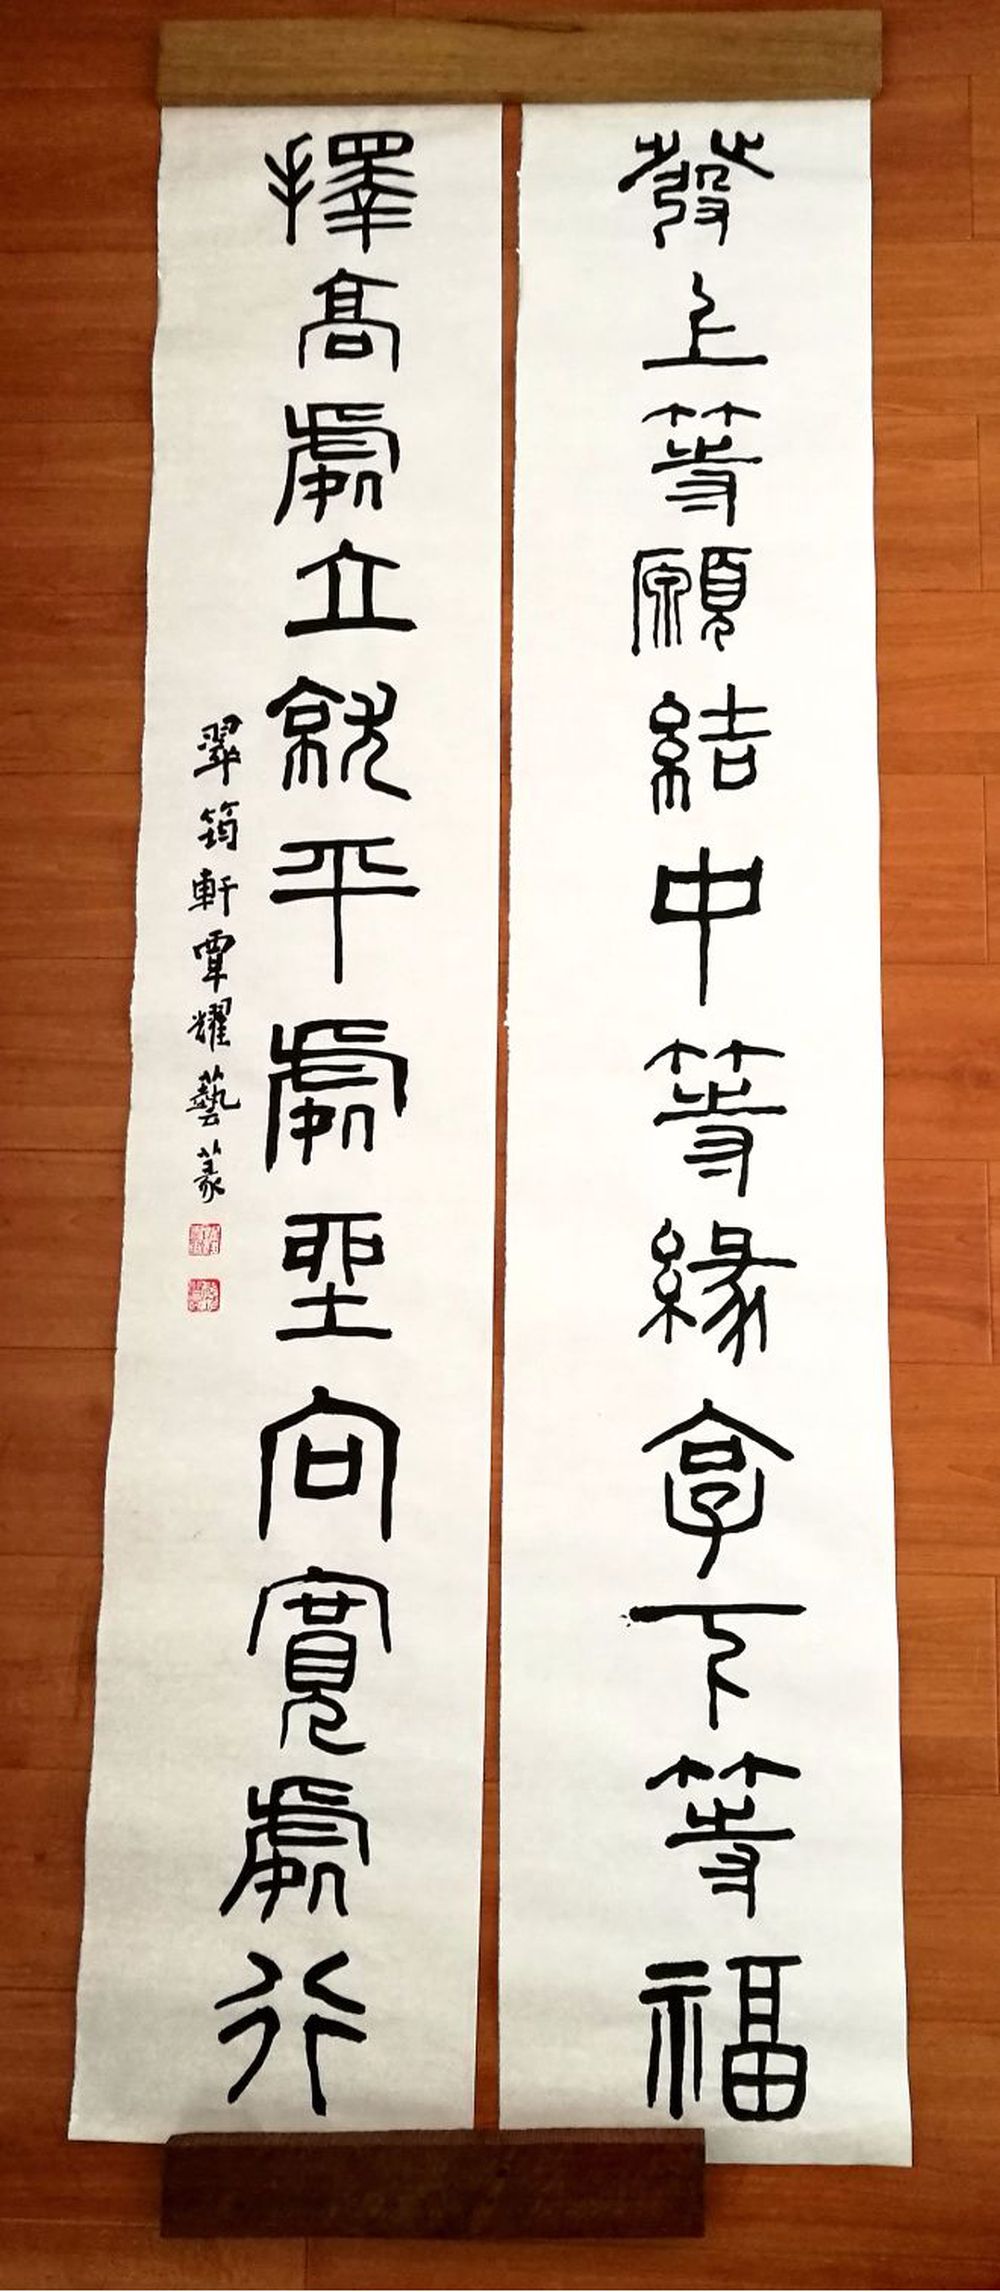 發上等願結中等緣享下等福
擇高處立就平處坐向寬處行
翠筠軒覃耀藝篆